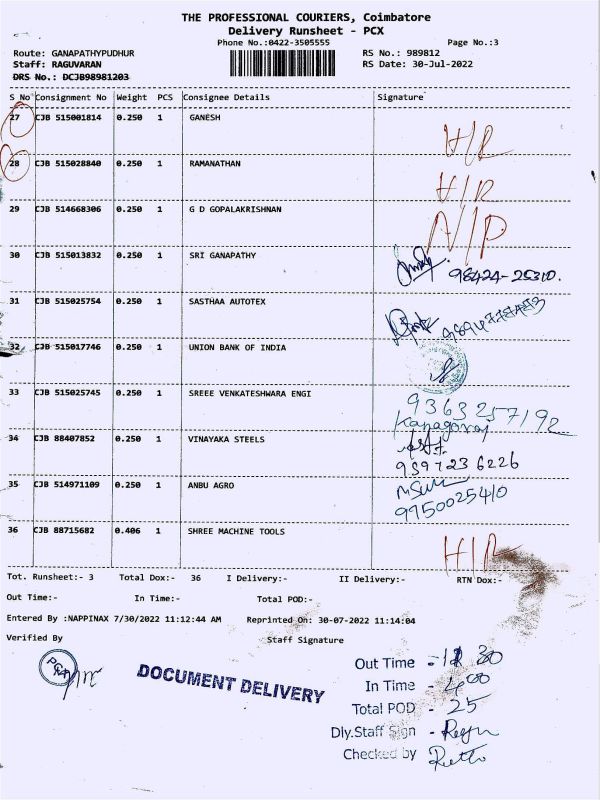 THE PROFESSIONAL COURIERS, Coimbatore
Delivery Runsheet - PCX
Phone No.:0422-3505555 Page No.:3
Route: GANAPATHYPUDHUR RS No.: 989812
Staff: RAGUVARAN RS Date: 30-Jul-2022
DRS No.: DCJB98981203
S No Consignment No Weight PCS Consignee Details Signature
27 CJB 515001814 0.250 1 GANESH H/R
28 CJB 515028840 0.250 1 RAMANATHAN H/R
29 CJB 514668306 0.250 1 G D GOPALAKRISHNAN N/P
30 CJB 515013832 0.250 1 SRI GANAPATHY 98424-25310.
31 CJB 515025754 0.250 1 SASTHAA AUTOTEX
32 CJB 515017746 0.250 1 UNION BANK OF INDIA
33 CJB 515025745 0.250 1 SREEE VENKATESHWARA ENGI 9363257192
Kanagaraj
34 CJB 88407852 0.250 1 VINAYAKA STEELS
9597236226
35 CJB 514971109 0.250 1 ANBU AGRO
9950025410
36 CJB 88715682 0.406 1 SHREE MACHINE TOOLS H/R
Tot. Runsheet:- 3 Total Dox:- 36 I Delivery:- II Delivery:- RTN Dox:-
Out Time:- In Time:- Total POD:-
Entered By :NAPPINAX 7/30/2022 11:12:44 AM Reprinted On: 30-07-2022 11:14:04
Verified By Staff Signature
DOCUMENT DELIVERY
Out Time - 12 30
In Time - 4.00
Total POD - 25
Dly.Staff Sign -
Checked by